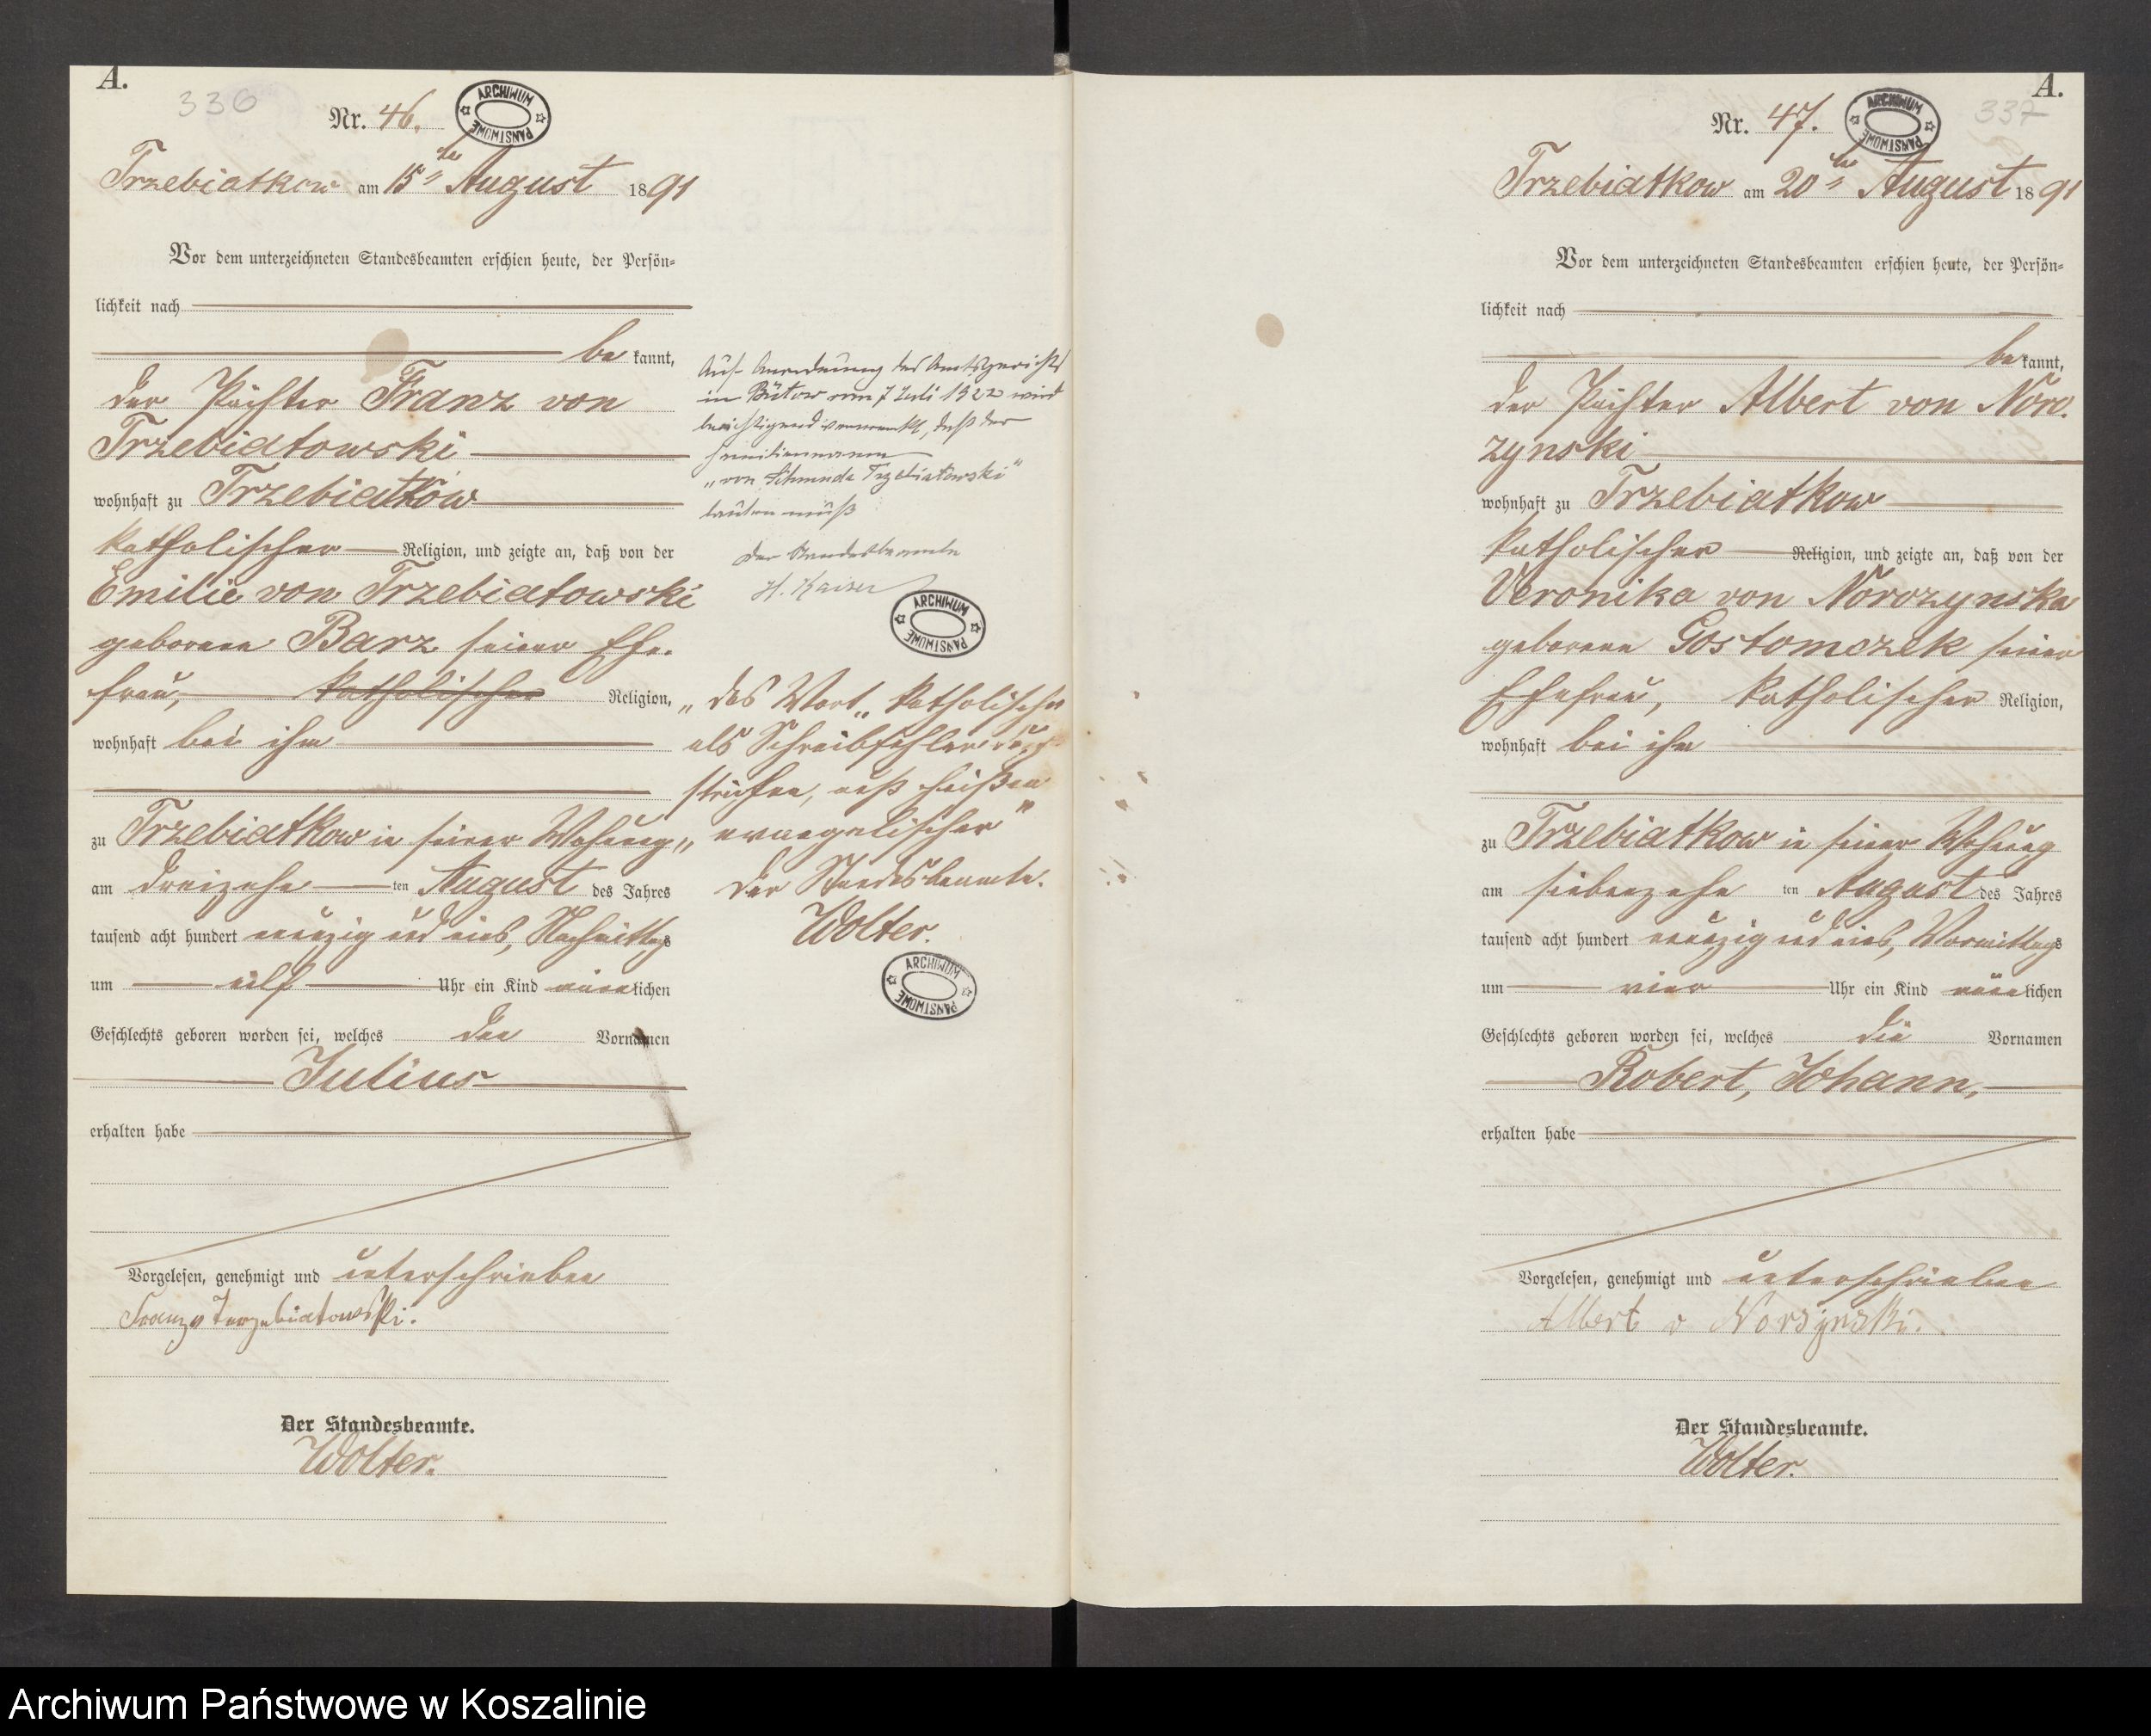 A.
336
Nr. 46.
ARCHIWUM PAŃSTWOWE
Trzebiatkow am 15ten August 1891
Vor dem unterzeichneten Standesbeamten erschien heute, der Persön-
lichkeit nach
be kannt,
der Pächter Franz von
Trzebiatowski
wohnhaft zu Trzebiatkow
katholischer Religion, und zeigte an, daß von der
Emilie von Trzebiatowski
geborene Barz seiner Ehe-
frau, katholischer Religion,
wohnhaft bei ihm
zu Trzebiatkow in seiner Wohnung
am dreizehn ten August des Jahres
tausend acht hundert neunzig und eins, Nachmittags
um elf Uhr ein Kind männlichen
Geschlechts geboren worden sei, welches den Vornamen
Julius
erhalten habe
Vorgelesen, genehmigt und unterschrieben
Franz v Trzebiatowski.
Der Standesbeamte.
Wolter.
Auf Anordnung des Amtsgerichts
in Bütow vom 7 Juli 1922 wird
berichtigend vermerkt, daß der
Familienname
"von Schmude Trzebiatowski"
lauten muß
Der Standesbeamte
H. Kaiser
ARCHIWUM PAŃSTWOWE
"das Wort "katholischer
als Schreibfehler durch-
strichen, muß heißen
"evangelischer"
Der Standesbeamte.
Wolter.
ARCHIWUM PAŃSTWOWE
A.
337
Nr. 47.
ARCHIWUM PAŃSTWOWE
Trzebiatkow am 20ten August 1891
Vor dem unterzeichneten Standesbeamten erschien heute, der Persön-
lichkeit nach
be kannt,
der Pächter Albert von Noro-
zynski
wohnhaft zu Trzebiatkow
katholischer Religion, und zeigte an, daß von der
Veronika von Norozynska
geborene Gostomczek seiner
Ehefrau, katholischer Religion,
wohnhaft bei ihm
zu Trzebiatkow in seiner Wohnung
am siebenzehn ten August des Jahres
tausend acht hundert neunzig und eins, Vormittags
um vier Uhr ein Kind männlichen
Geschlechts geboren worden sei, welches die Vornamen
Robert, Johann,
erhalten habe
Vorgelesen, genehmigt und unterschrieben
Albert v Norzynski.
Der Standesbeamte.
Wolter.
Archiwum Państwowe w Koszalinie